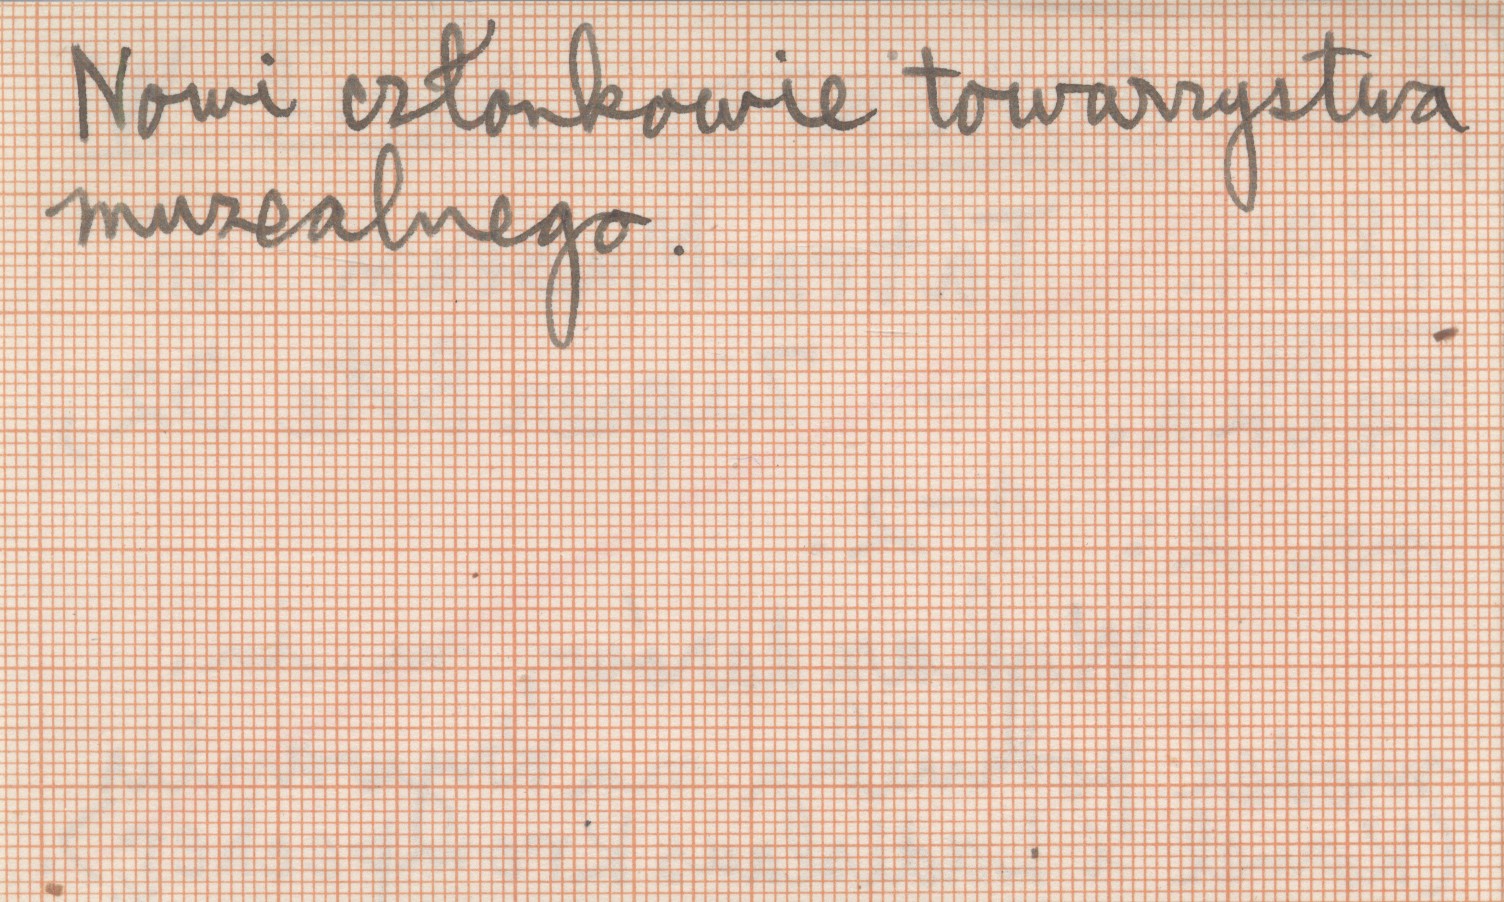 Nowi członkowie towarzystwa
muzealnego.